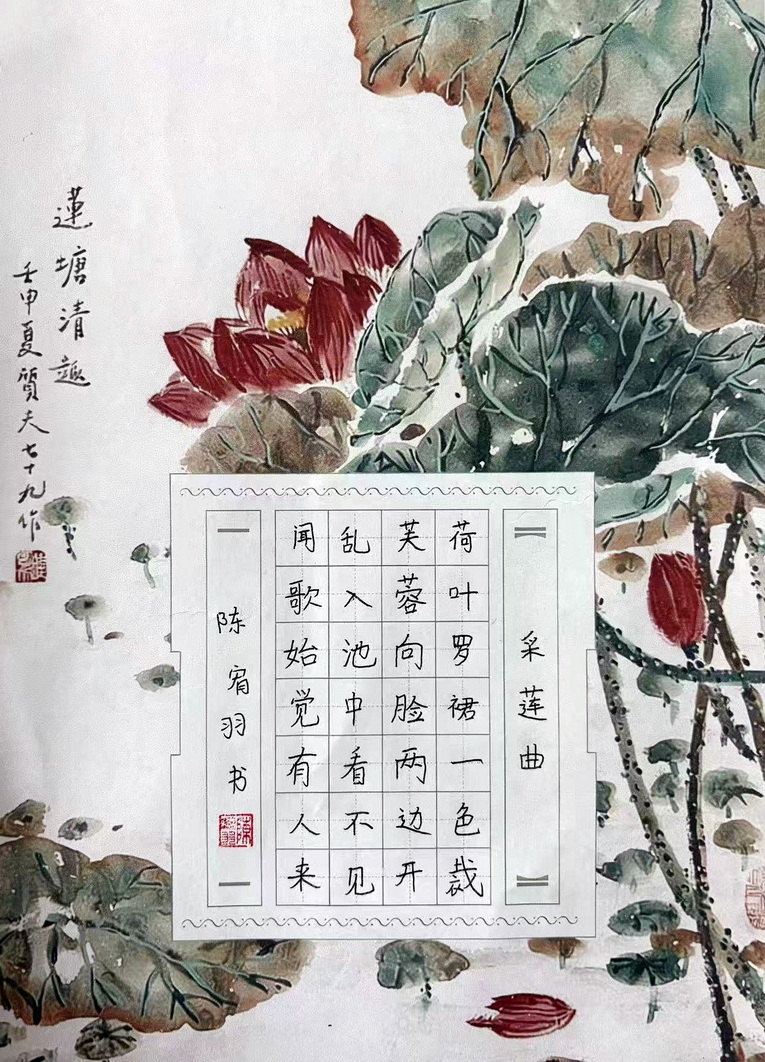 采莲曲
荷叶罗裙一色裁
芙蓉向脸两边开
乱入池中看不见
闻歌始觉有人来
陈宥羽书
蓮塘清趣
壬申夏質夫七十九作